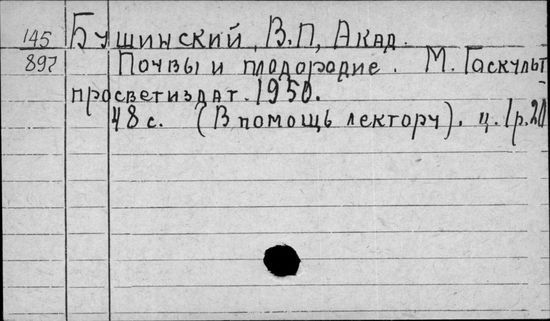 145 Бушинский, В.П, Акад.
897 Почвы и плодородие. М. Гаскульт
просветиздат. 1950.
48 с. (В помощь лектору). ц. 1р.20